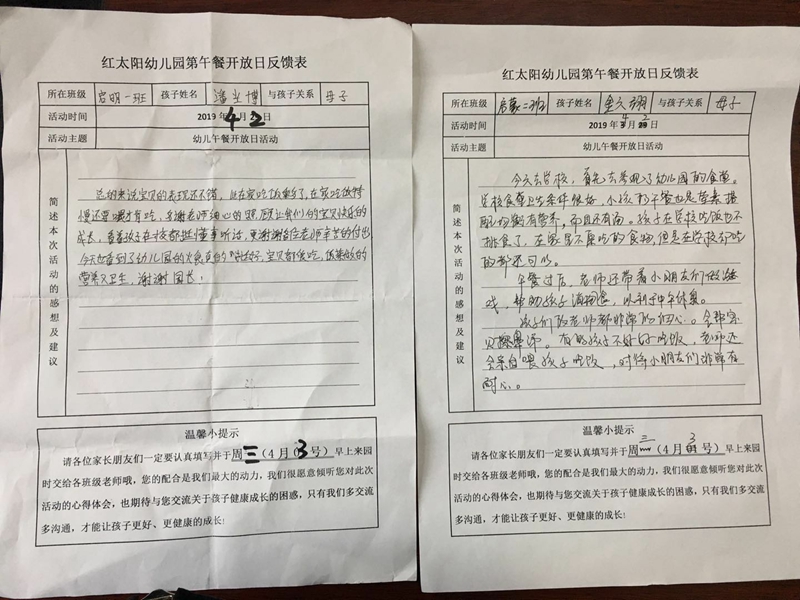 红太阳幼儿园第午餐开放日反馈表
所在班级 启明一班 孩子姓名 与孩子关系 母子
活动时间 2019年4月2日
活动主题 幼儿午餐开放日活动
简述本次活动的感想及建议
总的来说宝贝的表现还不错,比在家吃饭乖多了,在家吃饭特
慢还要喂才有吃,多谢老师细心的照顾让我们的宝贝快乐的
成长,看着孩子在校都挺懂事听话,更谢谢各位老师辛苦的付出
今天也看到了幼儿园的火食真的好,宝贝都爱吃,饭菜做的
营养又卫生,谢谢园长!
温馨小提示
请各位家长朋友们一定要认真填写并于周三(4月03号)早上来园
时交给各班级老师哦,您的配合是我们最大的动力,我们很愿意倾听您对此次
活动的心得体会,也期待与您交流关于孩子健康成长的困惑,只有我们多交流
多沟通,才能让孩子更好、更健康的成长!
红太阳幼儿园第午餐开放日反馈表
所在班级 启蒙二班 孩子姓名 与孩子关系 母子
活动时间 2019年4月2日
活动主题 幼儿午餐开放日活动
简述本次活动的感想及建议
今天去学校,首先去参观了幼儿园的食堂。
学校食堂卫生条件很好,小孩的午餐也是营养搭
配均衡有营养,而且还有汤。孩子在学校吃饭也不
挑食了,在家里不愿吃的食物,但是在学校都吃
的都还可以。
午餐过后,老师还带着小朋友们做游
戏,帮助孩子消消食,以利于中午休息。
孩子们的老师都非常的细心。会帮宝
贝擦鼻涕。有的孩子不好好吃饭,老师还
会亲自喂孩子吃饭,对待小朋友们非常有
耐心。
温馨小提示
请各位家长朋友们一定要认真填写并于周三(4月3号)早上来园
时交给各班级老师哦,您的配合是我们最大的动力,我们很愿意倾听您对此次
活动的心得体会,也期待与您交流关于孩子健康成长的困惑,只有我们多交流
多沟通,才能让孩子更好、更健康的成长!